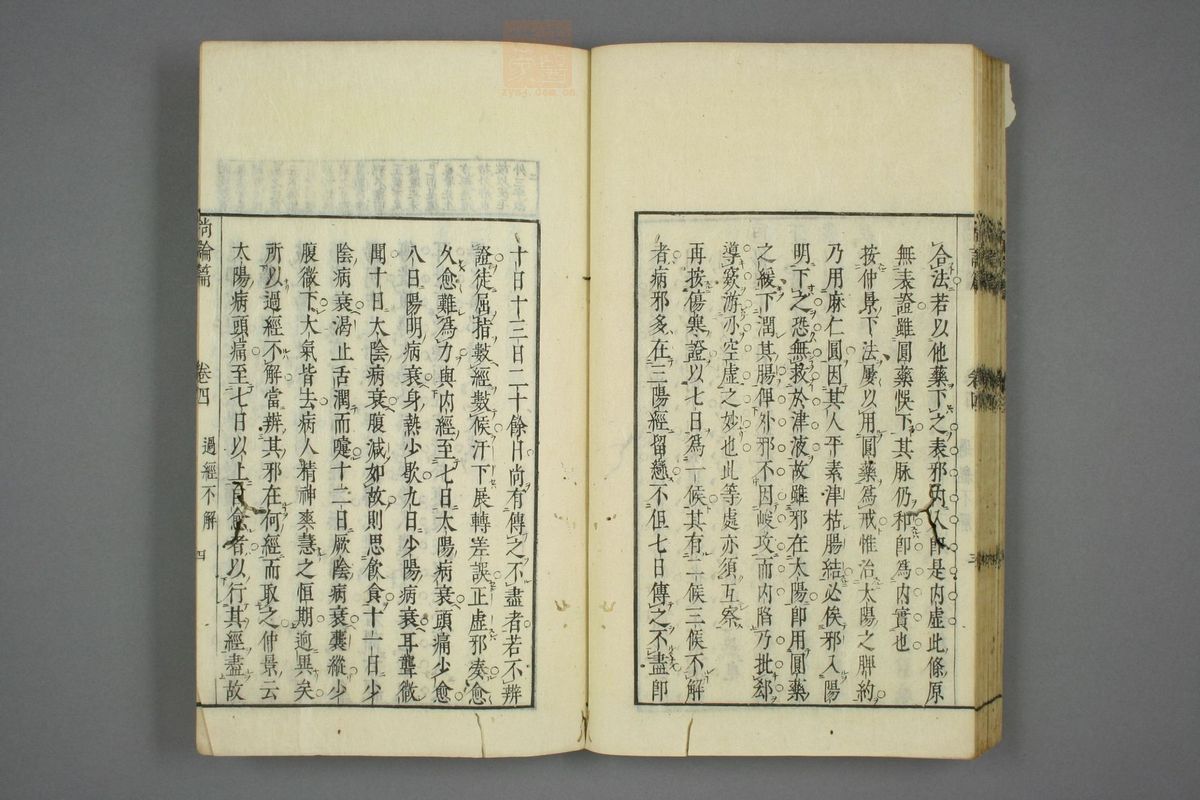 合法若以他藥下之表邪內入卽是內虛此條原
無表證雖圓藥悞下其脉仍和卽爲內實也
按仲景下法屢以用圓藥爲戒惟治太陽之脾約
乃用麻仁圓因其人平素津枯腸結必俟邪入陽
明下之恐無救於津液故雖邪在太陽卽用圓藥
之緩下潤其腸俾外邪不因峻攻而內䧟乃批郄
導窾游刃空虛之妙也此等處亦須互察
再按傷寒證以七日爲一候其有二候三候不解
者病邪多在三陽經留戀不但七日傳之不盡卽
十日十三日二十餘日尚有傳之不盡者若不辨
證徒屈指數經數候汗下展轉差誤正虛邪奏愈
久愈難爲力與內經至七日太陽病衰頭痛少愈
八日陽明病衰身熱少歇九日少陽病衰耳聾微
聞十日太陰病衰腹減如故則思飲食十一日少
陰病衰渴止舌潤而嚏十二日厥陰病衰囊縱少
腹微下大氣皆去病人精神爽慧之恒期逈異矣
所以過經不解當辨其邪在何經而取之仲景云
太陽病頭痛至七日以上自愈者以行其經盡故
尚論篇 卷四 過經不解 四
zysj.com.cn